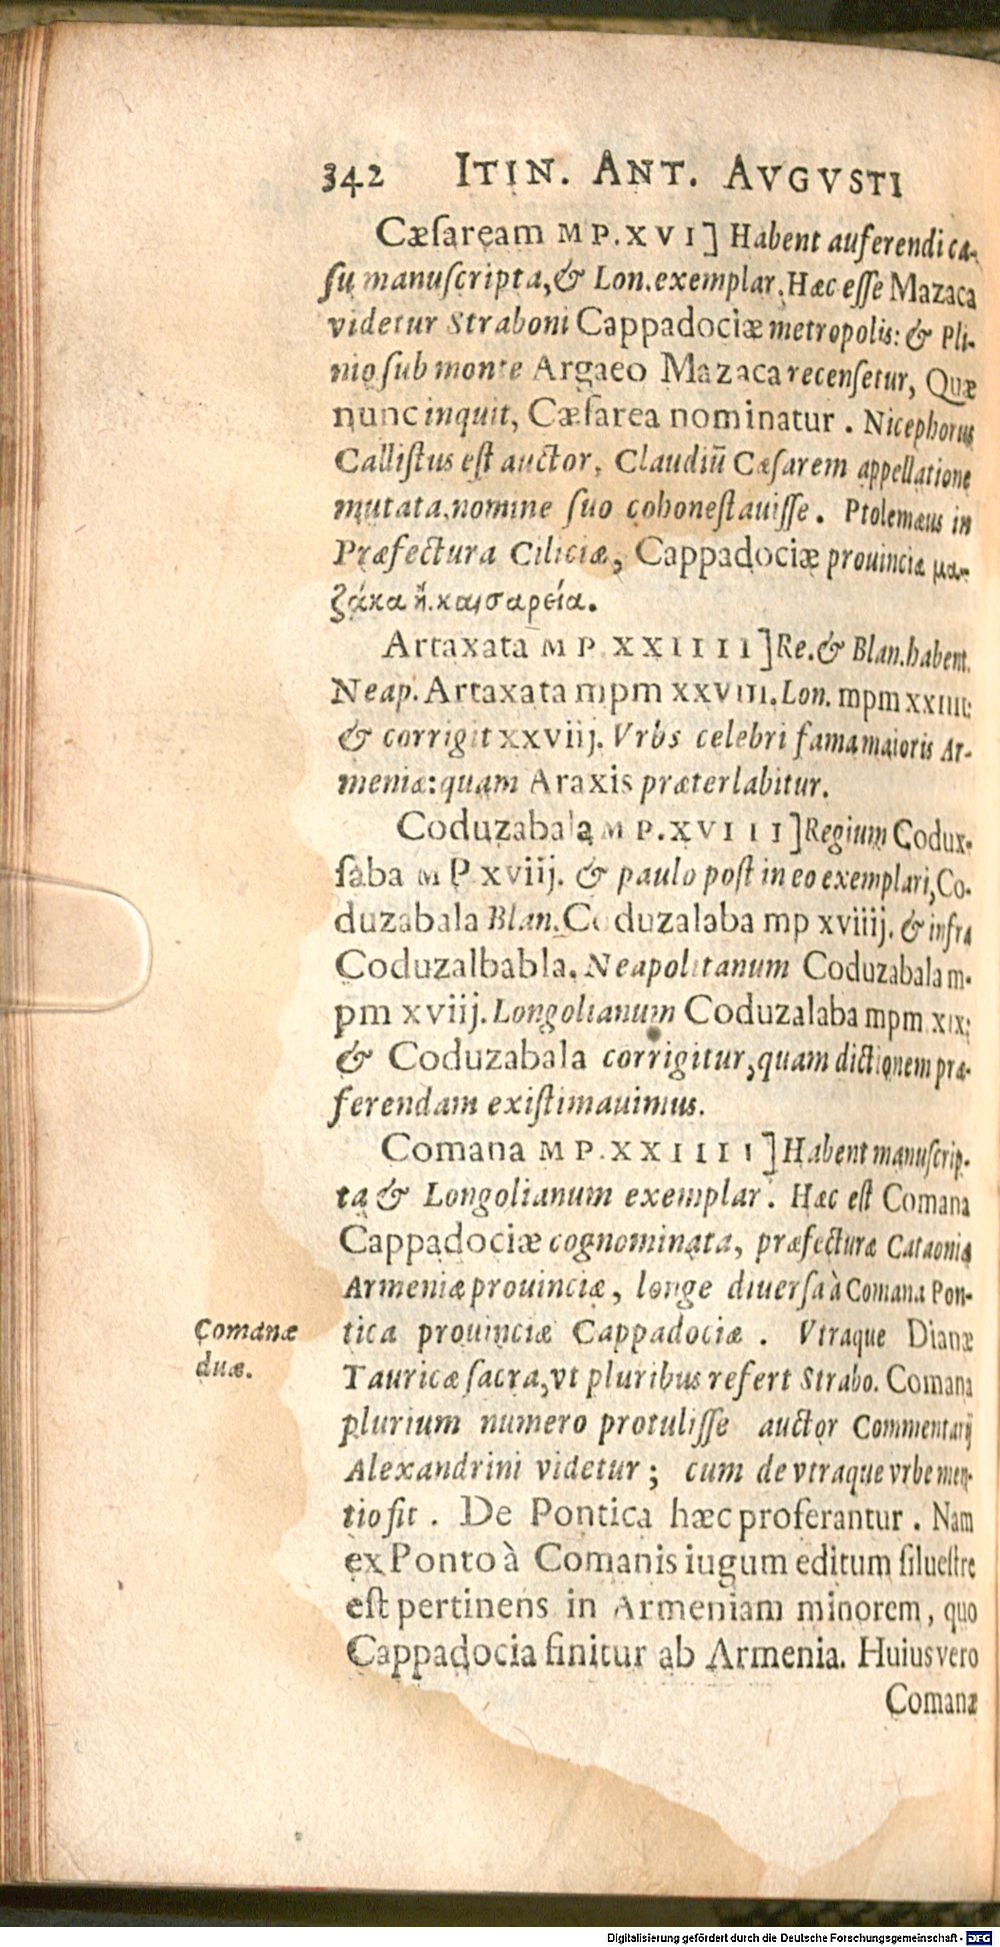 342 ITIN. ANT. AVGVSTI
Cæſaream MP.XVI] Habent auferendi ca-
ſu manuſcripta, & Lon. exemplar. Hæc eſſe Mazaca
videtur Straboni Cappadociæ metropolis: & Pli-
nio ſub monte Argaeo Mazaca recenſetur, Quæ
nunc inquit, Cæſarea nominatur. Nicephorus
Calliſtus eſt auctor, Claudiū Cæſarem appellatione
mutata, nomine ſuo cohoneſtauiſſe. Ptolemæus in
Præfectura Ciliciæ, Cappadociæ prouinciæ μα-
ζάκα ἢ καισαρεία.
Artaxata MP XXIIII] Re. & Blan. habent.
Neap. Artaxata mpm xxviii. Lon. mpm xxiiii:
& corrigit xxviij. Vrbs celebri fama maioris Ar-
meniæ: quam Araxis præterlabitur.
Coduzabala MP.XVIII] Regium Codux-
ſaba MP xviij. & paulo poſt in eo exemplari, Co-
duzabala Blan. Coduzalaba mp xviiij. & infra
Coduzalbabla. Neapolitanum Coduzabala m-
pm xviij. Longolianum Coduzalaba mpm xix:
& Coduzabala corrigitur, quam dictionem præ-
ferendam exiſtimauimus.
Comana MP.XXIIII] Habent manuſcrip-
ta & Longolianum exemplar. Hæc eſt Comana
Cappadociæ cognominata, præfecturæ Cataoniæ
Armeniæ prouinciæ, longe diuerſa à Comana Pon-
Comanæ
duæ.
tica prouinciæ Cappadociæ. Vtraque Dianæ
Tauricæ ſacra, vt pluribus refert Strabo. Comana
plurium numero protuliſſe auctor Commentarij
Alexandrini videtur; cum de vtraque vrbe men-
tio ſit. De Pontica hæc proferantur. Nam
ex Ponto à Comanis iugum editum ſilueſtre
eſt pertinens in Armeniam minorem, quo
Cappadocia finitur ab Armenia. Huius vero
Comanæ
Digitalisierung gefördert durch die Deutsche Forschungsgemeinschaft - DFG